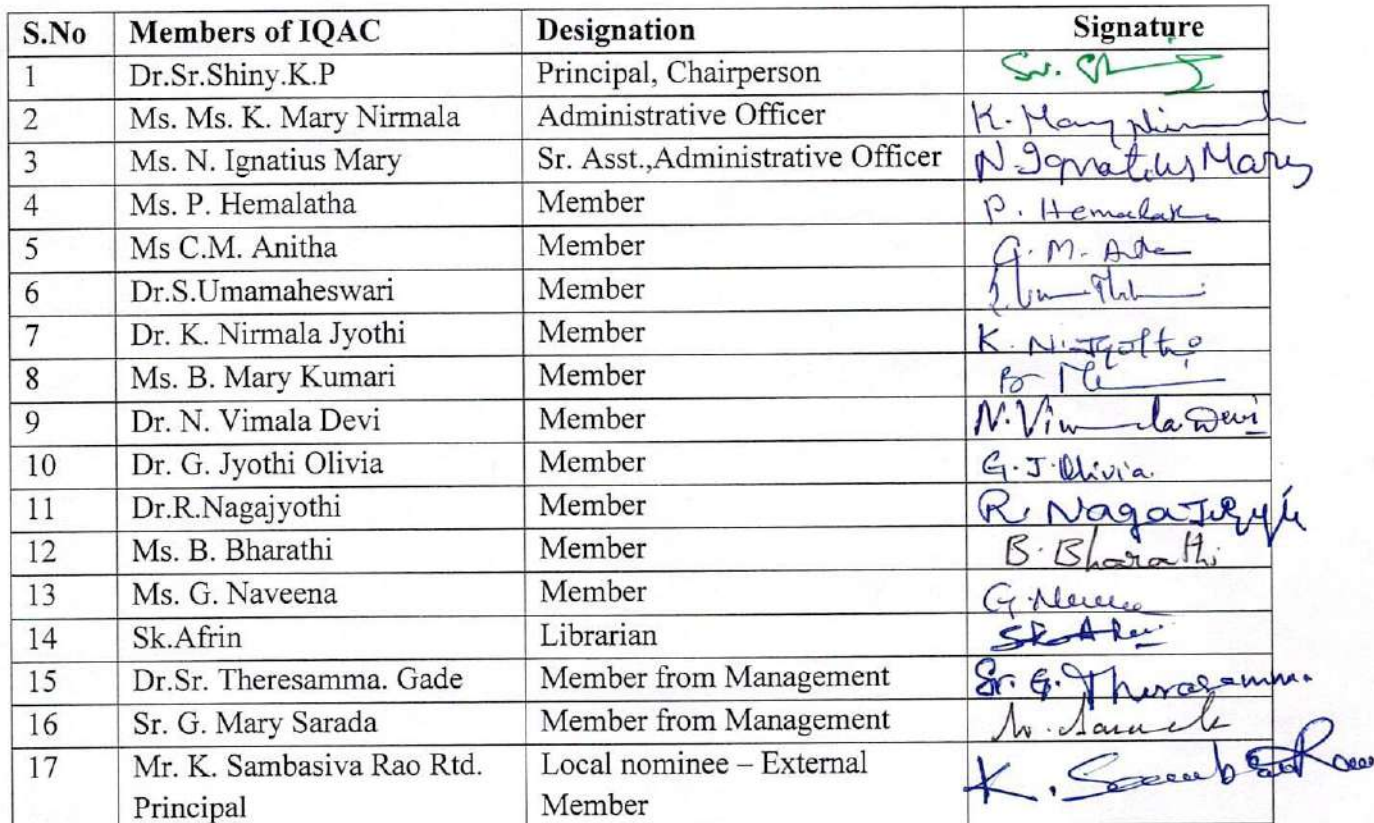 S.No Members of IQAC Designation Signature
1 Dr.Sr.Shiny.K.P Principal, Chairperson Sr.
2 Ms. Ms. K. Mary Nirmala Administrative Officer K. Mary
3 Ms. N. Ignatius Mary Sr. Asst.,Administrative Officer N. Ignatius Mary
4 Ms. P. Hemalatha Member P.
5 Ms C.M. Anitha Member
6 Dr.S.Umamaheswari Member
7 Dr. K. Nirmala Jyothi Member K. N. Jyothi
8 Ms. B. Mary Kumari Member
9 Dr. N. Vimala Devi Member N. Vimala Devi
10 Dr. G. Jyothi Olivia Member G. J. Olivia
11 Dr.R.Nagajyothi Member R. Nagajyothi
12 Ms. B. Bharathi Member B. Bharathi
13 Ms. G. Naveena Member G.
14 Sk.Afrin Librarian
15 Dr.Sr. Theresamma. Gade Member from Management Sr. G. Theresamma.
16 Sr. G. Mary Sarada Member from Management
17 Mr. K. Sambasiva Rao Rtd. Local nominee – External K.
Principal Member